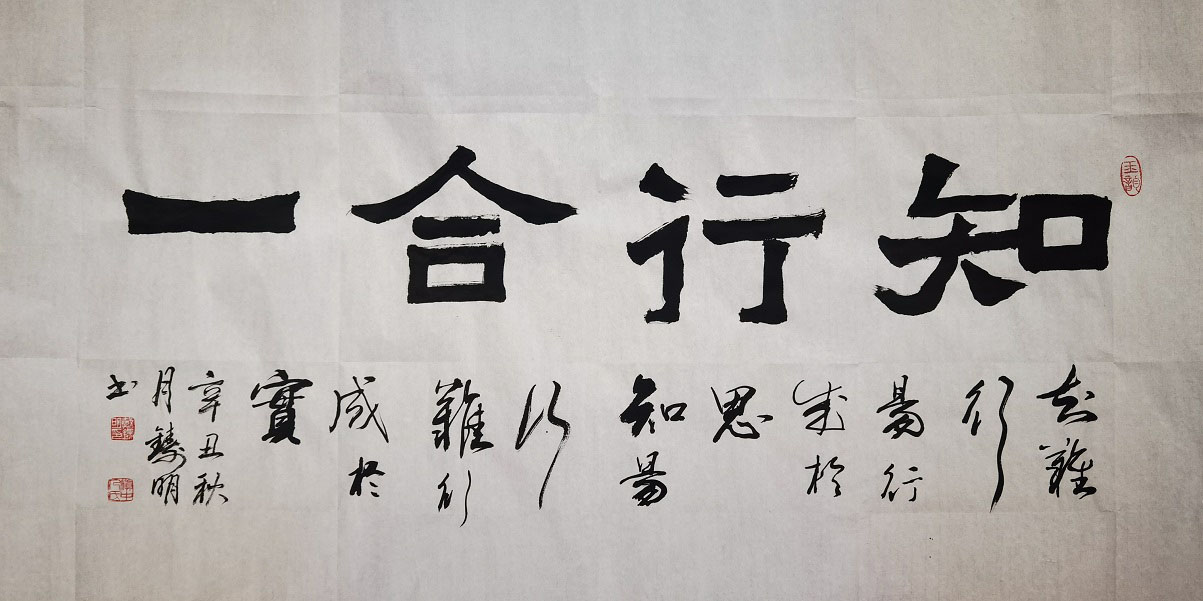 知行合一
知難
行
易行
成於
思
知易
行
難行
成於
實
辛丑秋
月鑄明
书